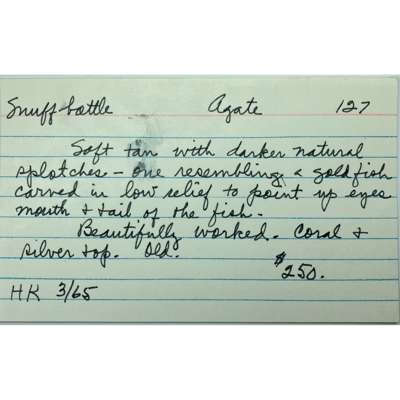 Snuff-bottle Agate 127
Soft tan with darker natural
splotches - one resembling a goldfish
carved in low relief to point up eyes
mouth & tail of the fish.
Beautifully worked. Coral &
silver top. Old.
$250.
HK 3/65